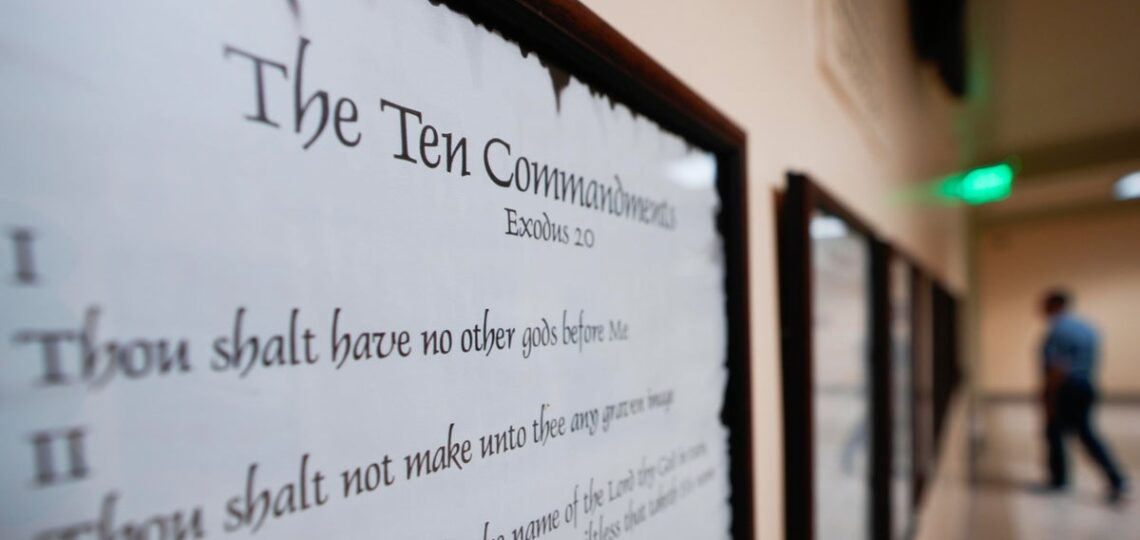 The Ten Commandments
Exodus 20
I
Thou shalt have no other gods before Me
II
Thou shalt not make unto thee any graven image
name of the Lord thy God in vain,
that taketh His name